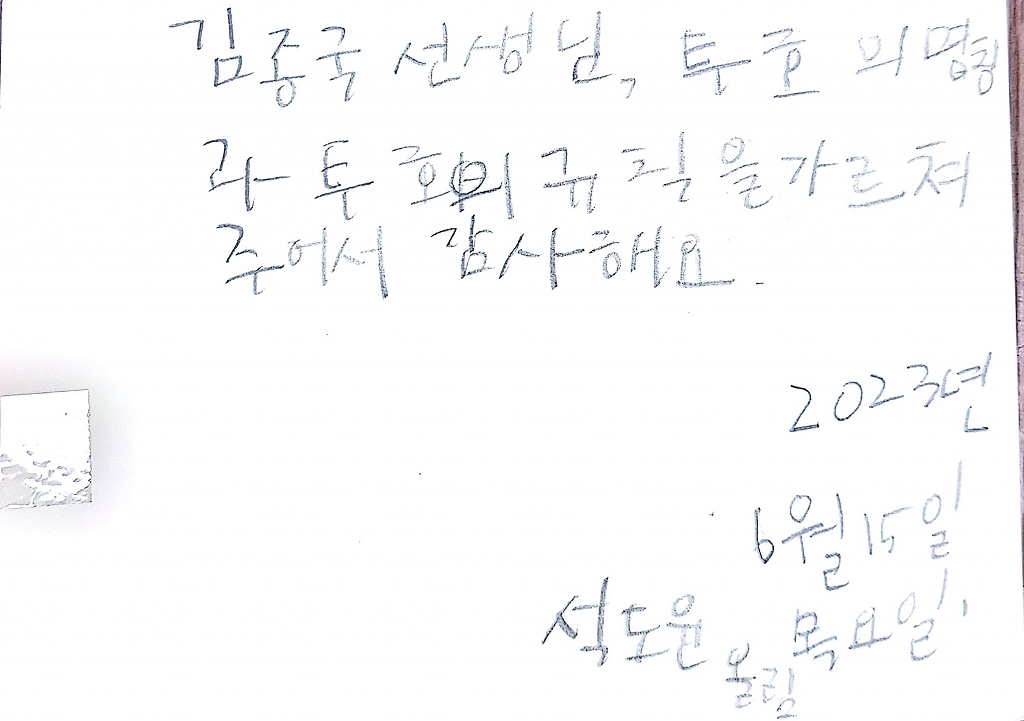 김종국 선생님, 투호의 명칭
과 투호의 규칙을 가르쳐
주어서 감사해요.
2023년
6월 15일
석도윤 목요일.
올림